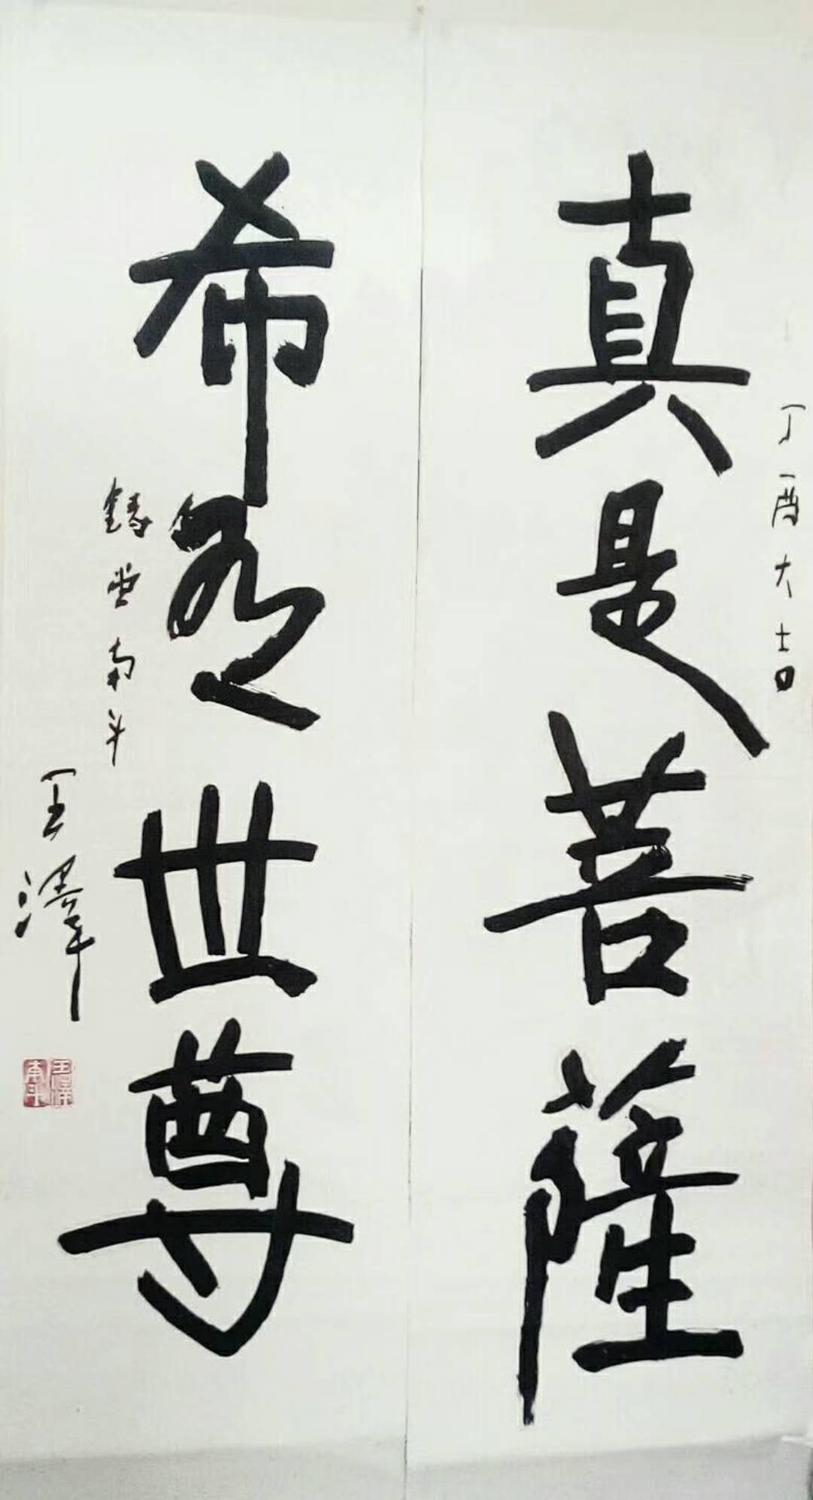 丁酉大吉
真是菩薩
希有世尊
鑄堂南斗
王澤
王澤
南斗